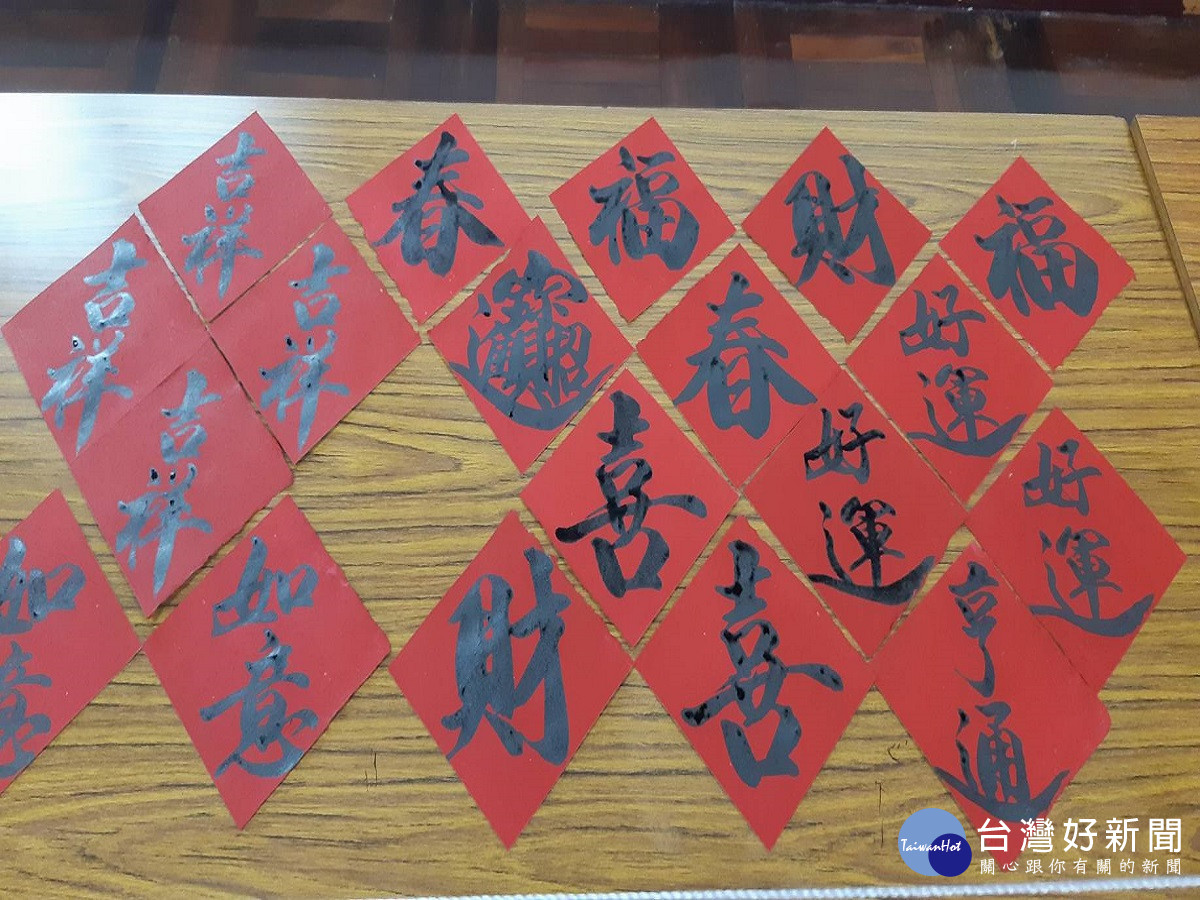 吉祥
春
福
財
福
吉祥
吉祥
招財進寶
春
好運
吉祥
喜
好運
好運
如意
如意
財
喜
亨通
TaiwanHot
台灣好新聞
關心跟你有關的新聞